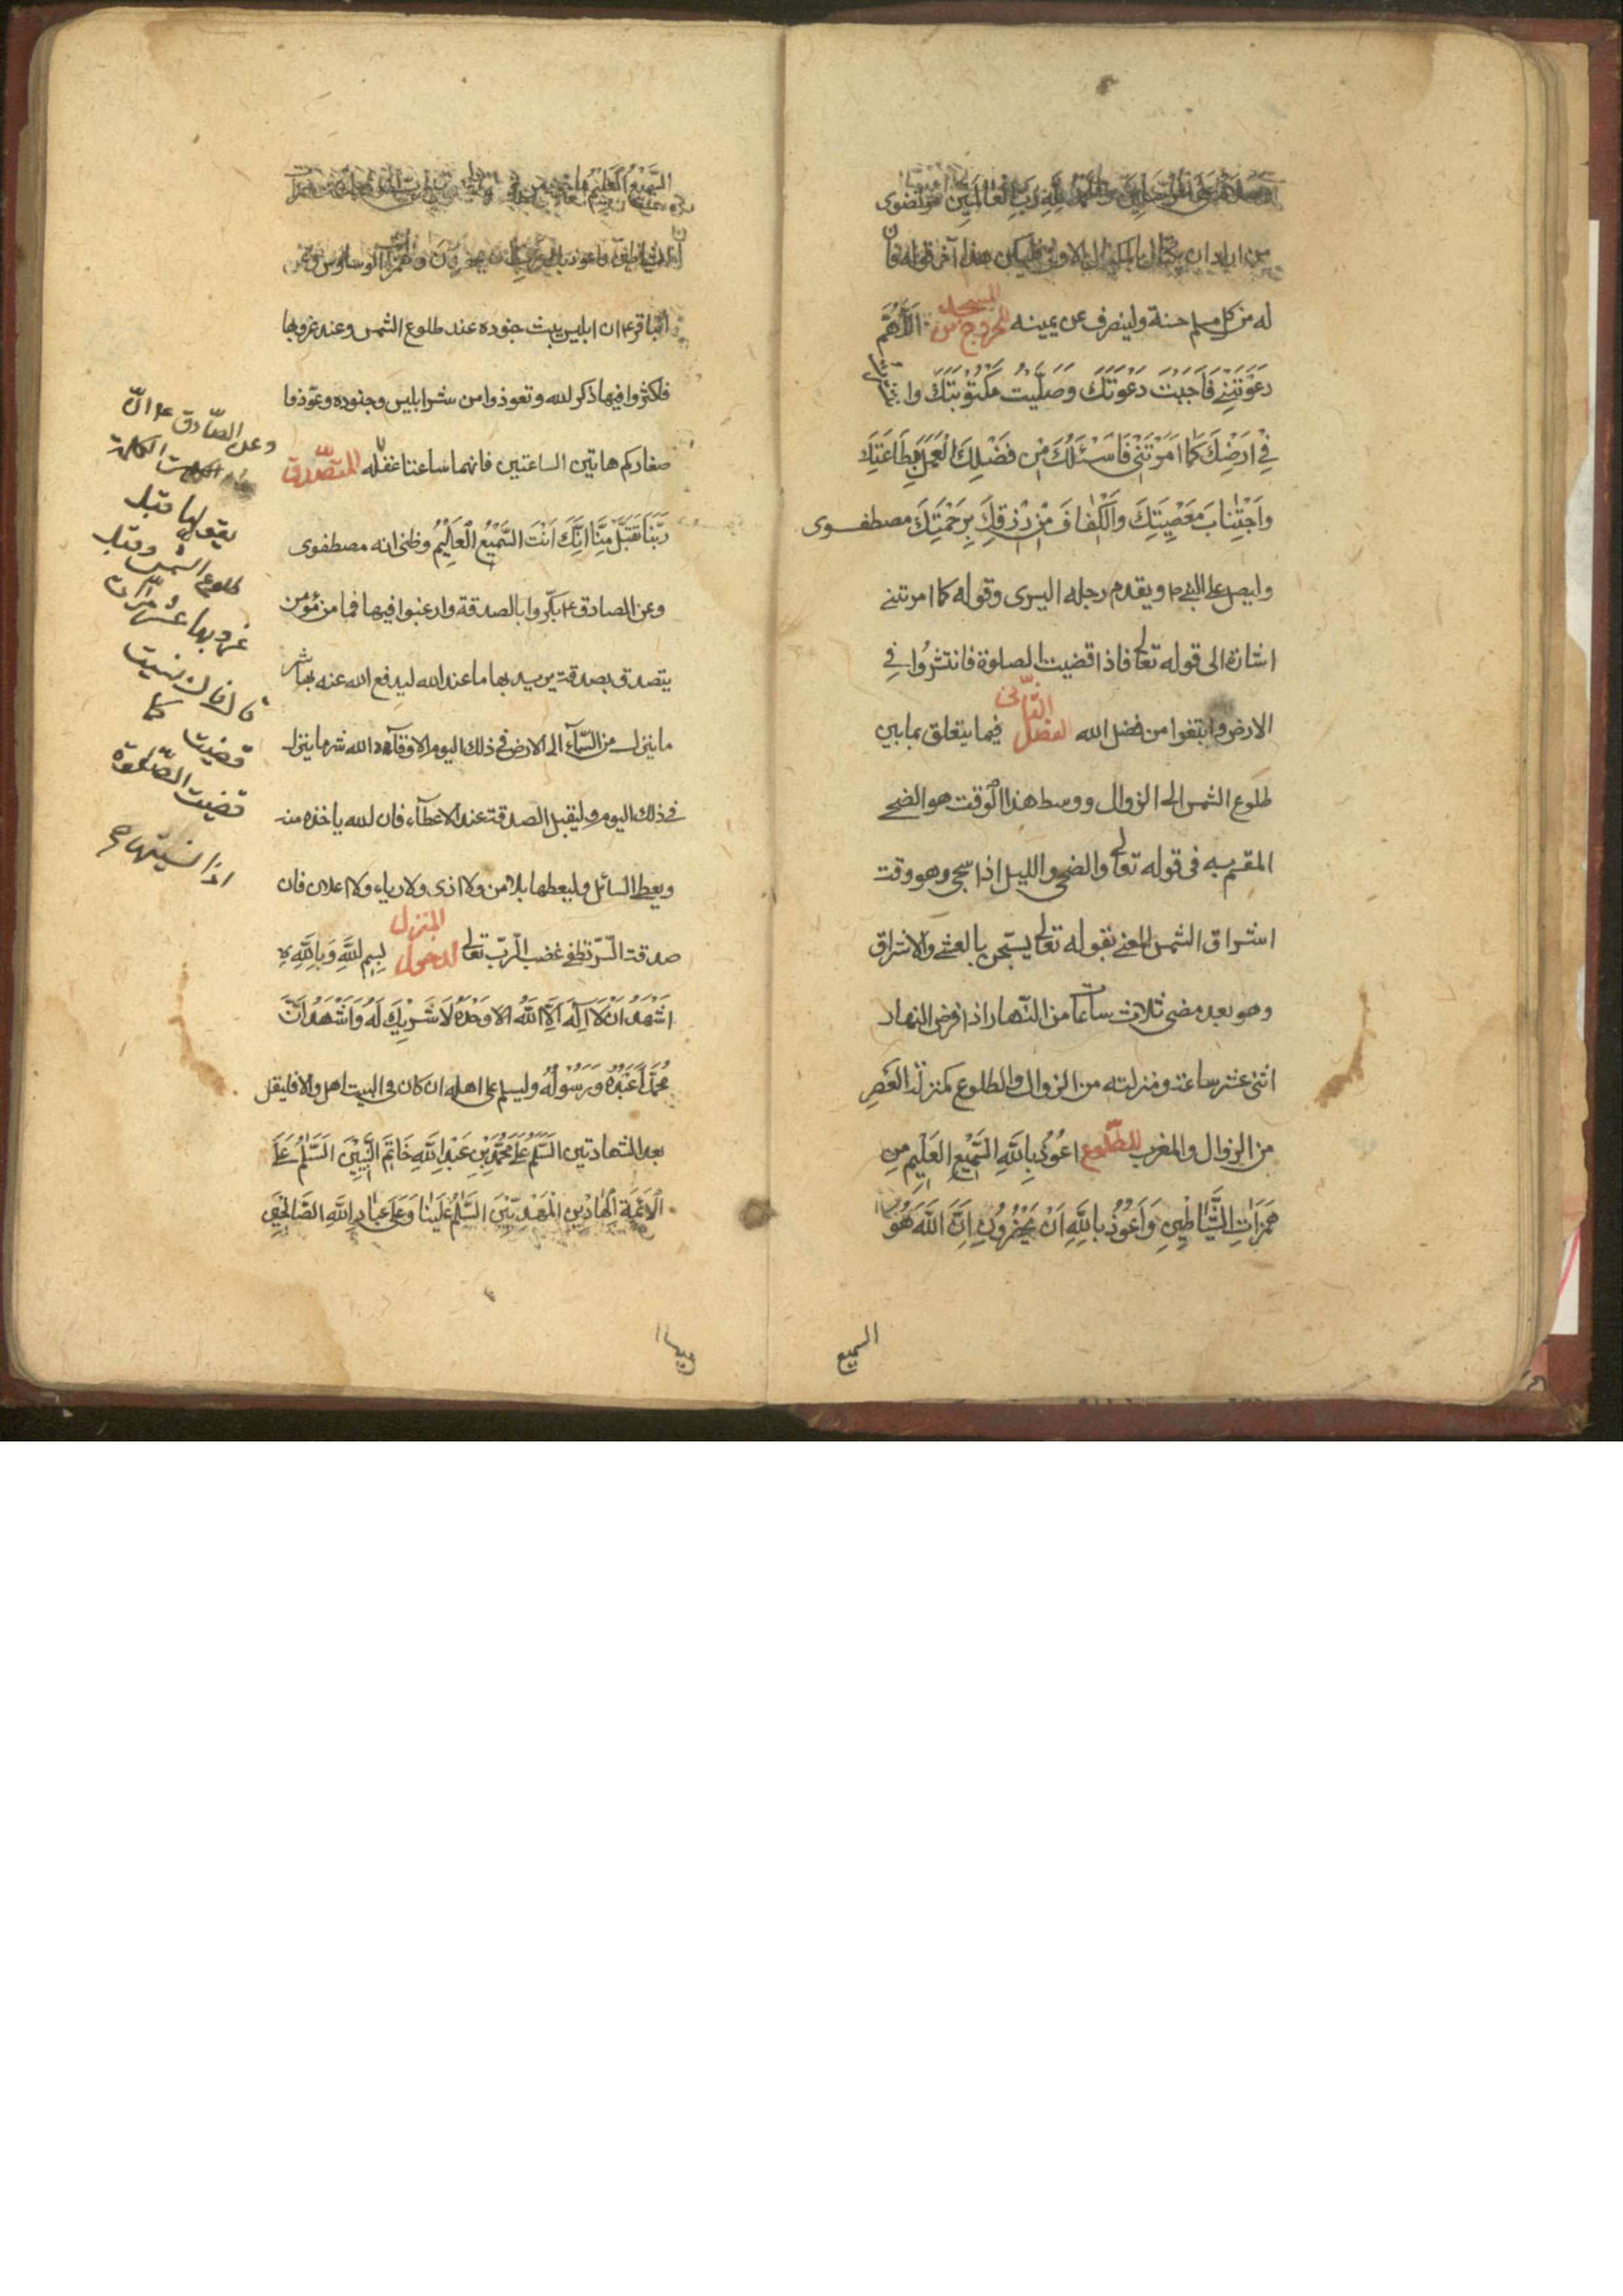 لله رب العالمين مرتضوى
من اراد ان يكتال بالمكيال الاوفى فليكن هذا آخر قوله فان
له من كل مسلم حسنة ولينصرف عن يمينه للخروج من المسجد اَللّٰهُمَّ
دَعَوْتَنِي فَاَجَبْتُ دَعْوَتَكَ وَصَلَّيْتُ مَكْتُوبَتَكَ وانتشرت
فِي اَرْضِكَ كَمَا اَمَرْتَنِي فَاَسْئَلُكَ مِنْ فَضْلِكَ الْعَمَلَ بِطَاعَتِكَ
وَاجْتِنَابَ مَعْصِيَتِكَ وَالْكَفَافَ مِنْ رِزْقِكَ بِرَحْمَتِكَ مصطفوى
وليصل على النبي ص ويقدم رجله اليسرى وقوله كما امرتني
اشارة الى قوله تعالى فاذا قضيت الصلوة فانتشروا في
الارض وابتغوا من فضل الله الفصل الثانى فيما يتعلق بما بين
طلوع الشمس الى الزوال ووسط هذا الوقت هو الضحى
المقسم به فى قوله تعالى والضحى والليل اذا سجى وهو وقت
اشراق الشمس المعنى بقوله تعالى يسبحن بالعشي والاشراق
وهو بعد مضى ثلاث ساعات من النهار اذا فرض النهار
اثنى عشر ساعة ومنزلته من الزوال والطلوع كمنزلة العصر
من الزوال والمغرب للطلوع اَعُوذُ بِاللّٰهِ السَّمِيعِ الْعَلِيمِ مِن
هَمَزَاتِ الشَّيَاطِينِ وَاَعُوذُ بِاللّٰهِ اَنْ يَحْضُرُونِ اِنَّ اللّٰهَ هُوَ
السميع
السَّمِيعُ الْعَلِيمُ
واعوذ بك رب ان يحضرون وعن
الباقر ع ان ابليس يبث جنوده عند طلوع الشمس وعند غروبها
فاكثروا فيها ذكر الله وتعوذوا من شر ابليس وجنوده وعوّذوا
صغاركم هاتين الساعتين فانهما ساعتا غفلة للتصدق
رَبَّنَا تَقَبَّلْ مِنَّا اِنَّكَ اَنْتَ السَّمِيعُ الْعَلِيمُ وظنى انه مصطفوى
وعن الصادق ع بكّروا بالصدقة وارغبوا فيها فما من مؤمن
يتصدق بصدقة يريد بها ما عند الله ليدفع الله عنه بها شر
ما ينزل من السّمآء الى الارض فى ذلك اليوم الا وقاه الله شر ما ينزل
فى ذلك اليوم وليقبل الصدقة عند الاعطآء فان الله ياخذه منه
ويعطى السائل وليعطها بلا من ولا اذى ولا رياء ولا اعلان فان
صدقة السّرّ تطفئ غضب الرّبّ تعالى لدخول المنزل بِسْمِ اللّٰهِ وَبِاللّٰهِ
اَشْهَدُ اَنْ لَا اِلٰهَ اِلَّا اللّٰهُ وَحْدَهُ لَا شَرِيكَ لَهُ وَاَشْهَدُ اَنَّ
مُحَمَّدًا عَبْدُهُ وَرَسُولُهُ وليسلم على اهله ان كان فى البيت اهل والا فليقل
بعد الشهادتين السَّلَامُ عَلَى مُحَمَّدِ بْنِ عَبْدِ اللّٰهِ خَاتَمِ النَّبِيِّينَ اَلسَّلَامُ عَلَى
الْاَئِمَّةِ الْهَادِينَ الْمَهْدِيِّينَ السَّلَامُ عَلَيْنَا وَعَلَى عِبَادِ اللّٰهِ الصَّالِحِينَ
وعن الصّادق ع انّ
يقولها قبل
طلوع الشمس وقبل
غروبها عشر مرّات
قال فان نسيت
قضيت كما
قضيت الصّلوة
اذا نسيتها